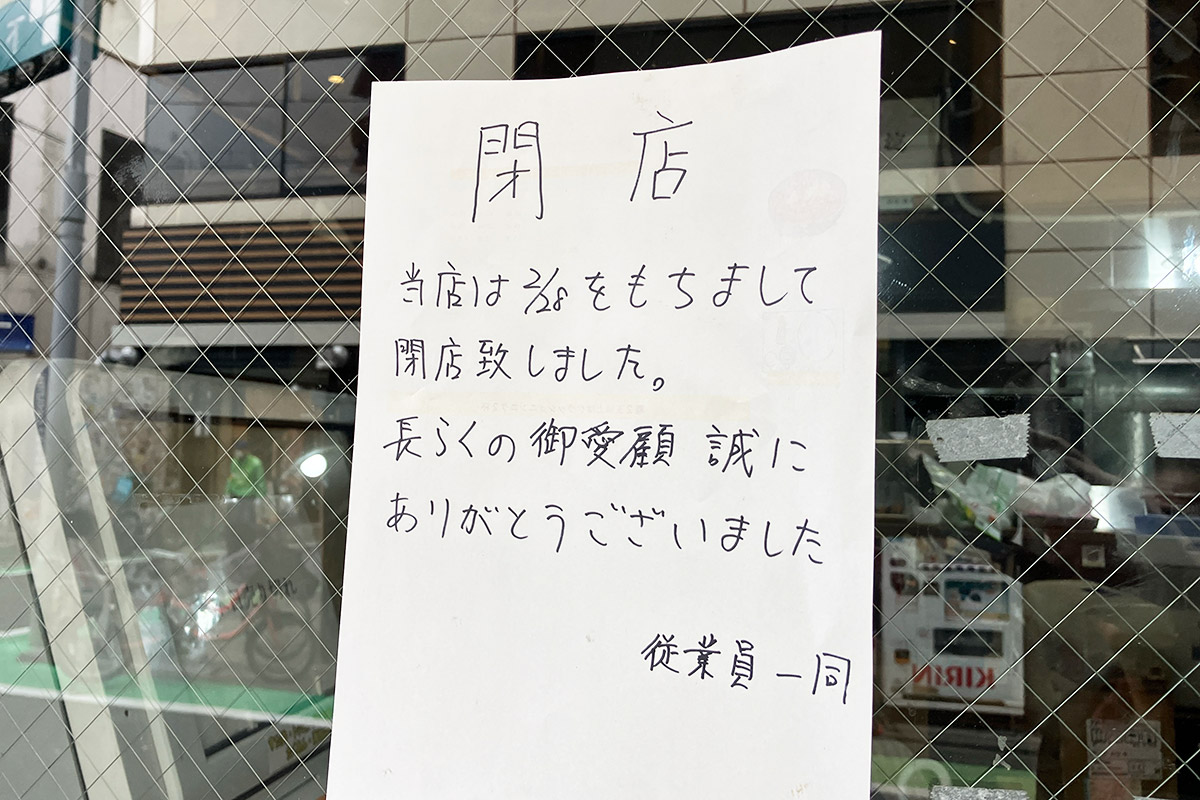 閉店
当店は2/28をもちまして
閉店致しました。
長らくの御愛顧 誠に
ありがとうございました
従業員一同
KIRIN